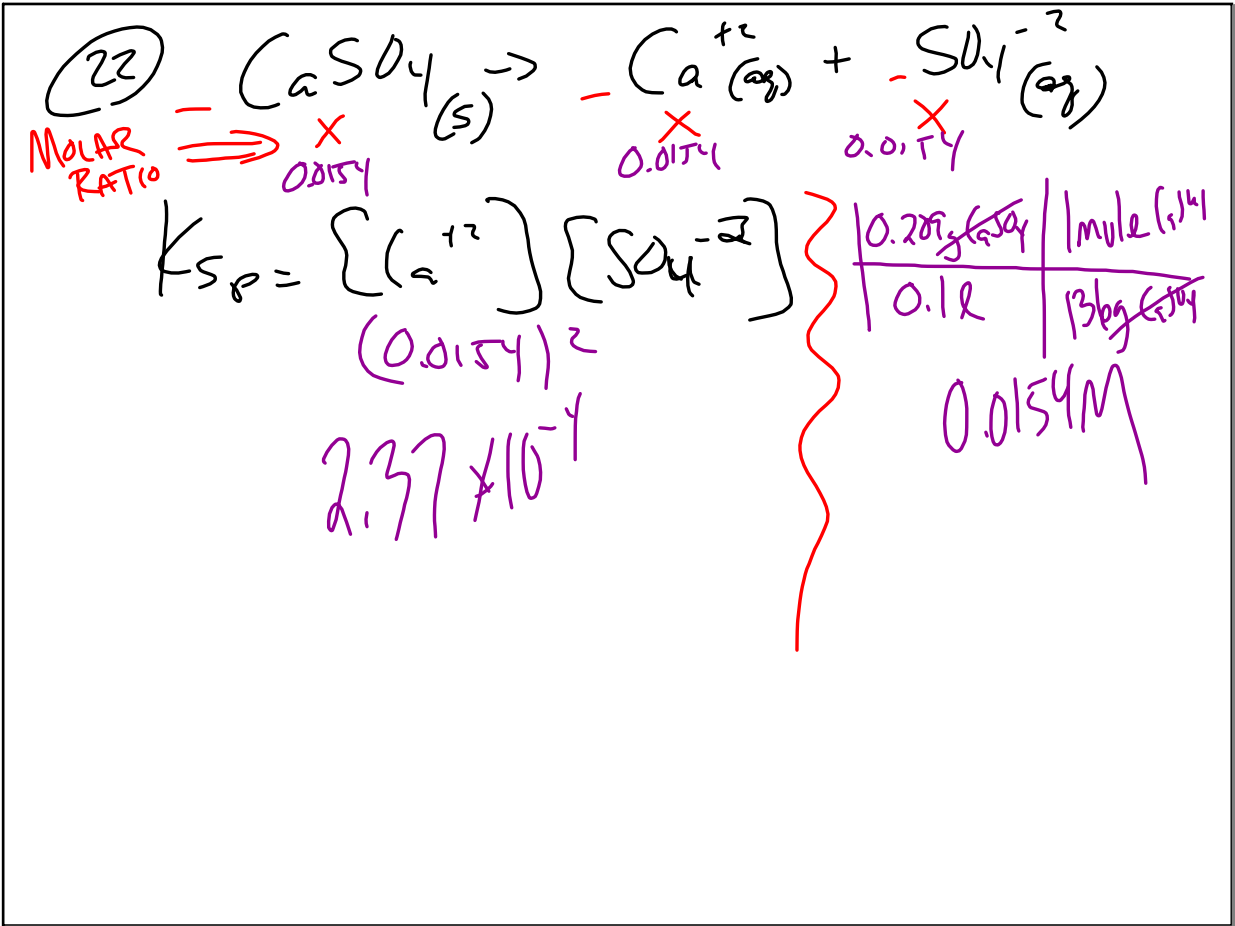 22 CaSO4(s) -> Ca+2(aq) + SO4-2(aq)
MOLAR RATIO => x x x
0.0154 0.0154 0.0154
Ksp = [Ca+2] [SO4-2]
(0.0154)2
2.37 x 10-4
0.209g CaSO4 1 mole CaSO4
0.1 l 136g CaSO4
0.0154M